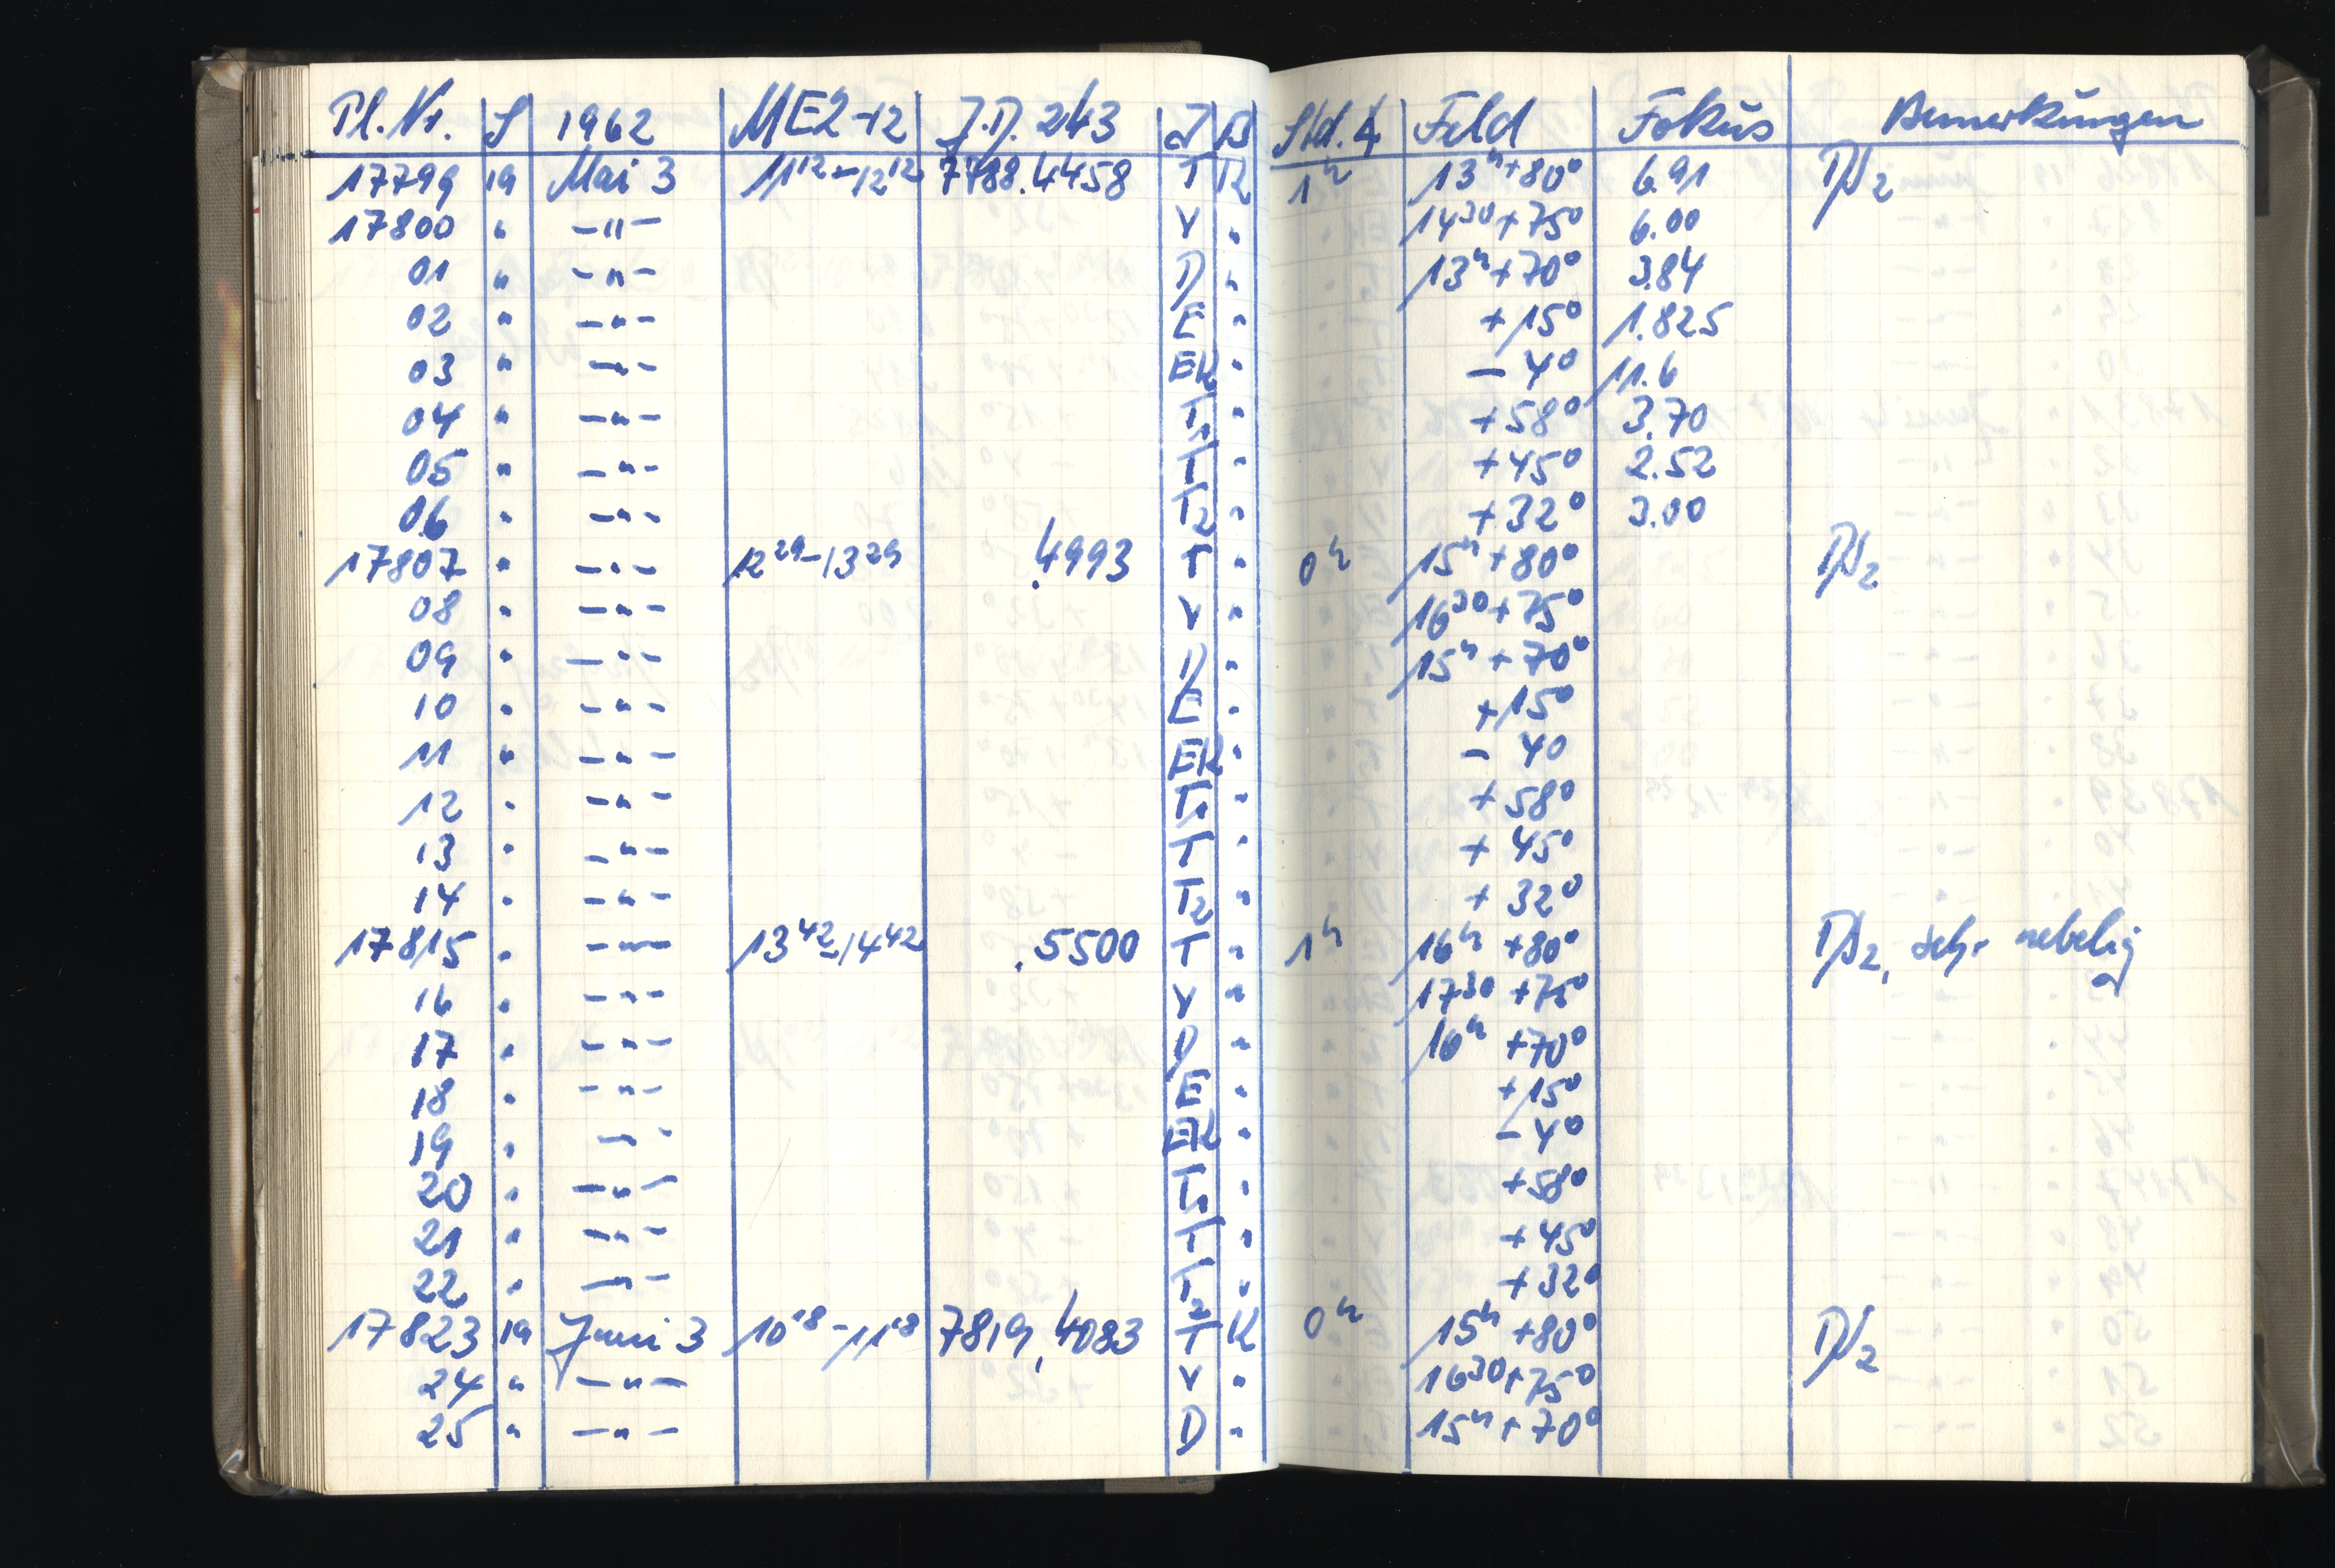 Pl.Nr. S 1962 MEZ-12 J.D. 243 J B Std.∢ Feld Fokus Bemerkungen
17799 19 Mai 3 11¹²-12¹² 7788.4458 T R 1ʰ 13ʰ+80° 6.91 D/2
17800 " -"- V " 14³⁰+75° 6.00
01 " -"- D " 13ʰ+70° 3.84
02 " -"- E " +15° 1.825
03 " -"- EK " -4° 11.6
04 " -"- T₁ " +58° 3.70
05 " -"- T " +45° 2.52
06 " -"- T₂ " +32° 3.00
17807 " -"- 12²⁹-13²⁹ .4993 T " 0ʰ 15ʰ+80°
08 " -"- V " 16³⁰+75°
09 " -"- D " 15ʰ+70°
10 " -"- E " +15°
11 " -"- EK " -4°
12 " -"- T₁ " +58°
13 " -"- T " +45°
14 " -"- T₂ " +32°
17815 " -"- 13⁴²-14⁴² .5500 T " 1ʰ 16ʰ+80° sehr nebelig
16 " -"- V " 17³⁰+75°
17 " -"- D " 16ʰ+70°
18 " -"- E " +15°
19 " -"- EK " -4°
20 " -"- T₁ " +58°
21 " -"- T " +45°
22 " -"- T₂ " +32°
17823 19 Juni 3 10¹⁸-11¹⁸ 7819.4083 T K 0ʰ 15ʰ+80°
24 " -"- V " 16³⁰+75°
25 " -"- D " 15ʰ+70°